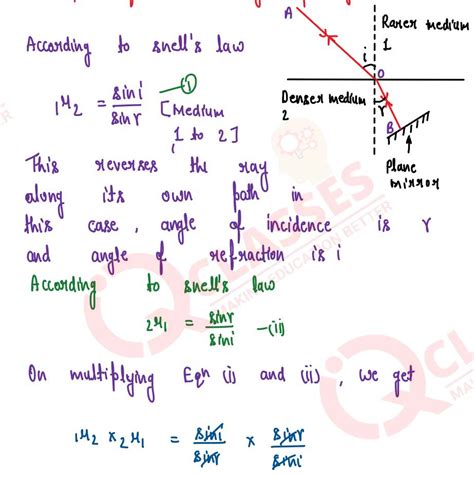 A
Rarer medium
1
According to snell's law
i
O
₁μ₂ = sin i / sin r —①
[Medium 1 to 2]
Denser medium
2
r
B
Plane mirror
This reverses the ray
along its own path in
this case, angle of incidence is r
and angle of refraction is i
According to snell's law
₂μ₁ = sin r / sin i —(ii)
On multiplying Eqn (i) and (ii), we get
₁μ₂ × ₂μ₁ = sin i / sin r × sin r / sin i
CLASSES
MAKING EDUCATION BETTER